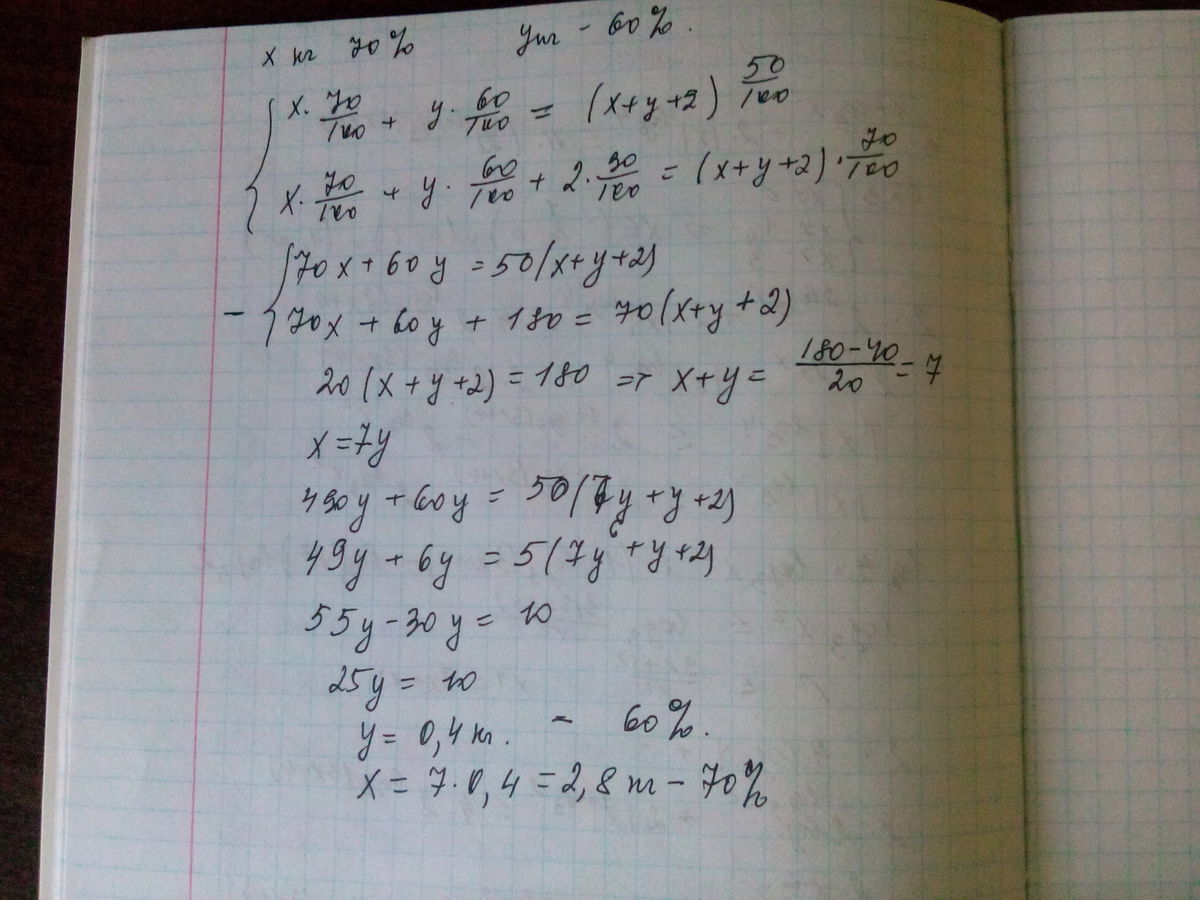 x кг 70% y кг - 60%.
x · 70/100 + y · 60/100 = (x+y+2) 50/100
x · 70/100 + y · 60/100 + 2 · 90/100 = (x+y+2) · 70/100
70x + 60y = 50(x+y+2)
- 70x + 60y + 180 = 70(x+y+2)
20(x+y+2) = 180 => x+y = 180-40/20 = 7
x = 7y
490y + 60y = 50(7y + y + 2)
49y + 6y = 5(7y + y + 2)
55y - 30y = 10
25y = 10
y = 0,4 кг. - 60%.
x = 7·0,4 = 2,8 кг - 70%